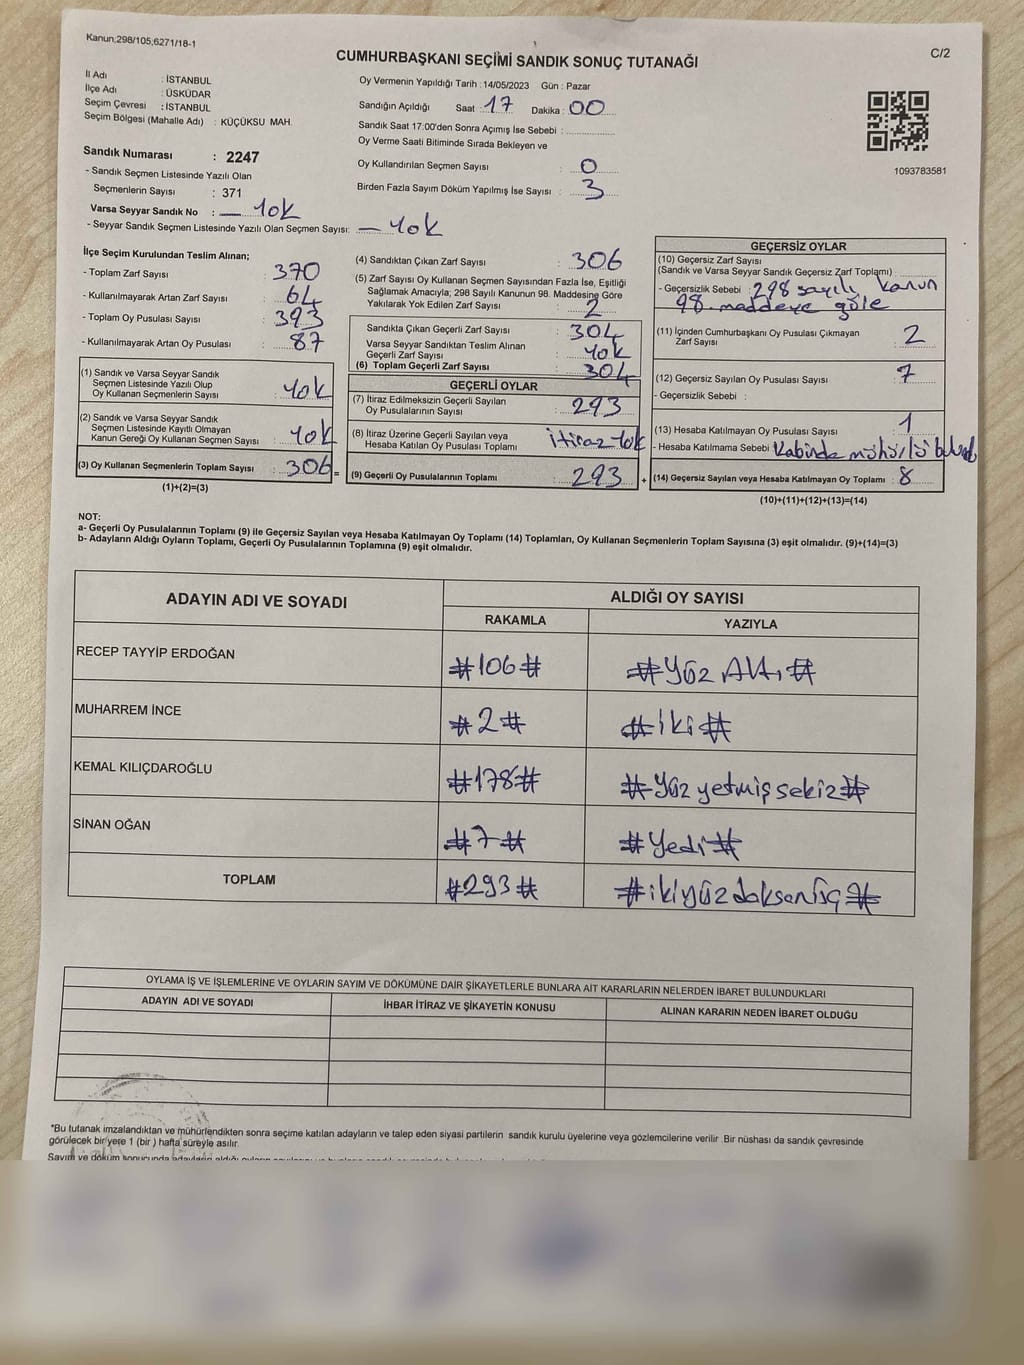 Kanun;298/105;6271/18-1
C/2
CUMHURBAŞKANI SEÇİMİ SANDIK SONUÇ TUTANAĞI
İl Adı : İSTANBUL
İlçe Adı : ÜSKÜDAR
Seçim Çevresi : İSTANBUL
Seçim Bölgesi (Mahalle Adı) : KÜÇÜKSU MAH.
Sandık Numarası : 2247
- Sandık Seçmen Listesinde Yazılı Olan
Seçmenlerin Sayısı : 371
Varsa Seyyar Sandık No : — Yok
- Seyyar Sandık Seçmen Listesinde Yazılı Olan Seçmen Sayısı: — Yok
Oy Vermenin Yapıldığı Tarih : 14/05/2023 Gün : Pazar
Sandığın Açıldığı Saat : 17 Dakika : 00
Sandık Saat 17:00'den Sonra Açımış İse Sebebi :
Oy Verme Saati Bitiminde Sırada Bekleyen ve
Oy Kullandırılan Seçmen Sayısı : 0
Birden Fazla Sayım Döküm Yapılmış İse Sayısı : 3
1093783581
İlçe Seçim Kurulundan Teslim Alınan;
- Toplam Zarf Sayısı : 370
- Kullanılmayarak Artan Zarf Sayısı : 64
- Toplam Oy Pusulası Sayısı : 393
- Kullanılmayarak Artan Oy Pusulası : 87
(1) Sandık ve Varsa Seyyar Sandık
Seçmen Listesinde Yazılı Olup
Oy Kullananların Seçmenlerin Sayısı : Yok
(2) Sandık ve Varsa Seyyar Sandık
Seçmen Listesinde Kayıtlı Olmayan
Kanun Gereği Oy Kullanan Seçmen Sayısı : Yok
(3) Oy Kullanan Seçmenlerin Toplam Sayısı : 306 =
(1)+(2)=(3)
(4) Sandıktan Çıkan Zarf Sayısı : 306
(5) Zarf Sayısı Oy Kullanan Seçmen Sayısından Fazla İse, Eşitliği
Sağlamak Amacıyla; 298 Sayılı Kanunun 98. Maddesine Göre
Yakılarak Yok Edilen Zarf Sayısı : 2
Sandıkta Çıkan Geçerli Zarf Sayısı : 304
Varsa Seyyar Sandıktan Teslim Alınan
Geçerli Zarf Sayısı : Yok
(6) Toplam Geçerli Zarf Sayısı : 304
GEÇERLİ OYLAR
(7) İtiraz Edilmeksizin Geçerli Sayılan
Oy Pusulalarının Sayısı : 293
(8) İtiraz Üzerine Geçerli Sayılan veya
Hesaba Katılan Oy Pusulası Toplamı : itiraz Yok
(9) Geçerli Oy Pusulalarının Toplamı : 293 +
GEÇERSİZ OYLAR
(10) Geçersiz Zarf Sayısı
(Sandık ve Varsa Seyyar Sandık Geçersiz Zarf Toplamı) :
- Geçersizlik Sebebi : 298 sayılı kanun
98. maddeye göre
(11) İçinden Cumhurbaşkanı Oy Pusulası Çıkmayan
Zarf Sayısı : 2
(12) Geçersiz Sayılan Oy Pusulası Sayısı : 7
- Geçersizlik Sebebi :
(13) Hesaba Katılmayan Oy Pusulası Sayısı : 1
- Hesaba Katılmama Sebebi : Kabinde mühürlü
(14) Geçersiz Sayılan veya Hesaba Katılmayan Oy Toplamı : 8
(10)+(11)+(12)+(13)=(14)
NOT:
a- Geçerli Oy Pusulalarının Toplamı (9) ile Geçersiz Sayılan veya Hesaba Katılmayan Oy Toplamı (14) Toplamları, Oy Kullanan Seçmenlerin Toplam Sayısına (3) eşit olmalıdır. (9)+(14)=(3)
b- Adayların Aldığı Oyların Toplamı, Geçerli Oy Pusulalarının Toplamına (9) eşit olmalıdır.
ADAYIN ADI VE SOYADI ALDIĞI OY SAYISI
RAKAMLA YAZIYLA
RECEP TAYYİP ERDOĞAN #106# #Yüz Altı#
MUHARREM İNCE #2# #iki#
KEMAL KILIÇDAROĞLU #178# #Yüz yetmiş sekiz#
SİNAN OĞAN #7# #Yedi#
TOPLAM #293# #ikiyüz doksan üç#
OYLAMA İŞ VE İŞLEMLERİNE VE OYLARIN SAYIM VE DÖKÜMÜNE DAİR ŞİKAYETLERLE BUNLARA AİT KARARLARIN NELERDEN İBARET BULUNDUKLARI
ADAYIN ADI VE SOYADI İHBAR İTİRAZ VE ŞİKAYETİN KONUSU ALINAN KARARIN NEDEN İBARET OLDUĞU
*Bu tutanak imzalandıktan ve mühürlendikten sonra seçime katılan adayların ve talep eden siyasi partilerin sandık kurulu üyelerine veya gözlemcilerine verilir .Bir nüshası da sandık çevresinde
görülecek bir yere 1 (bir ) hafta süreyle asılır.
Sayım ve döküm sonucunda adayların aldığı